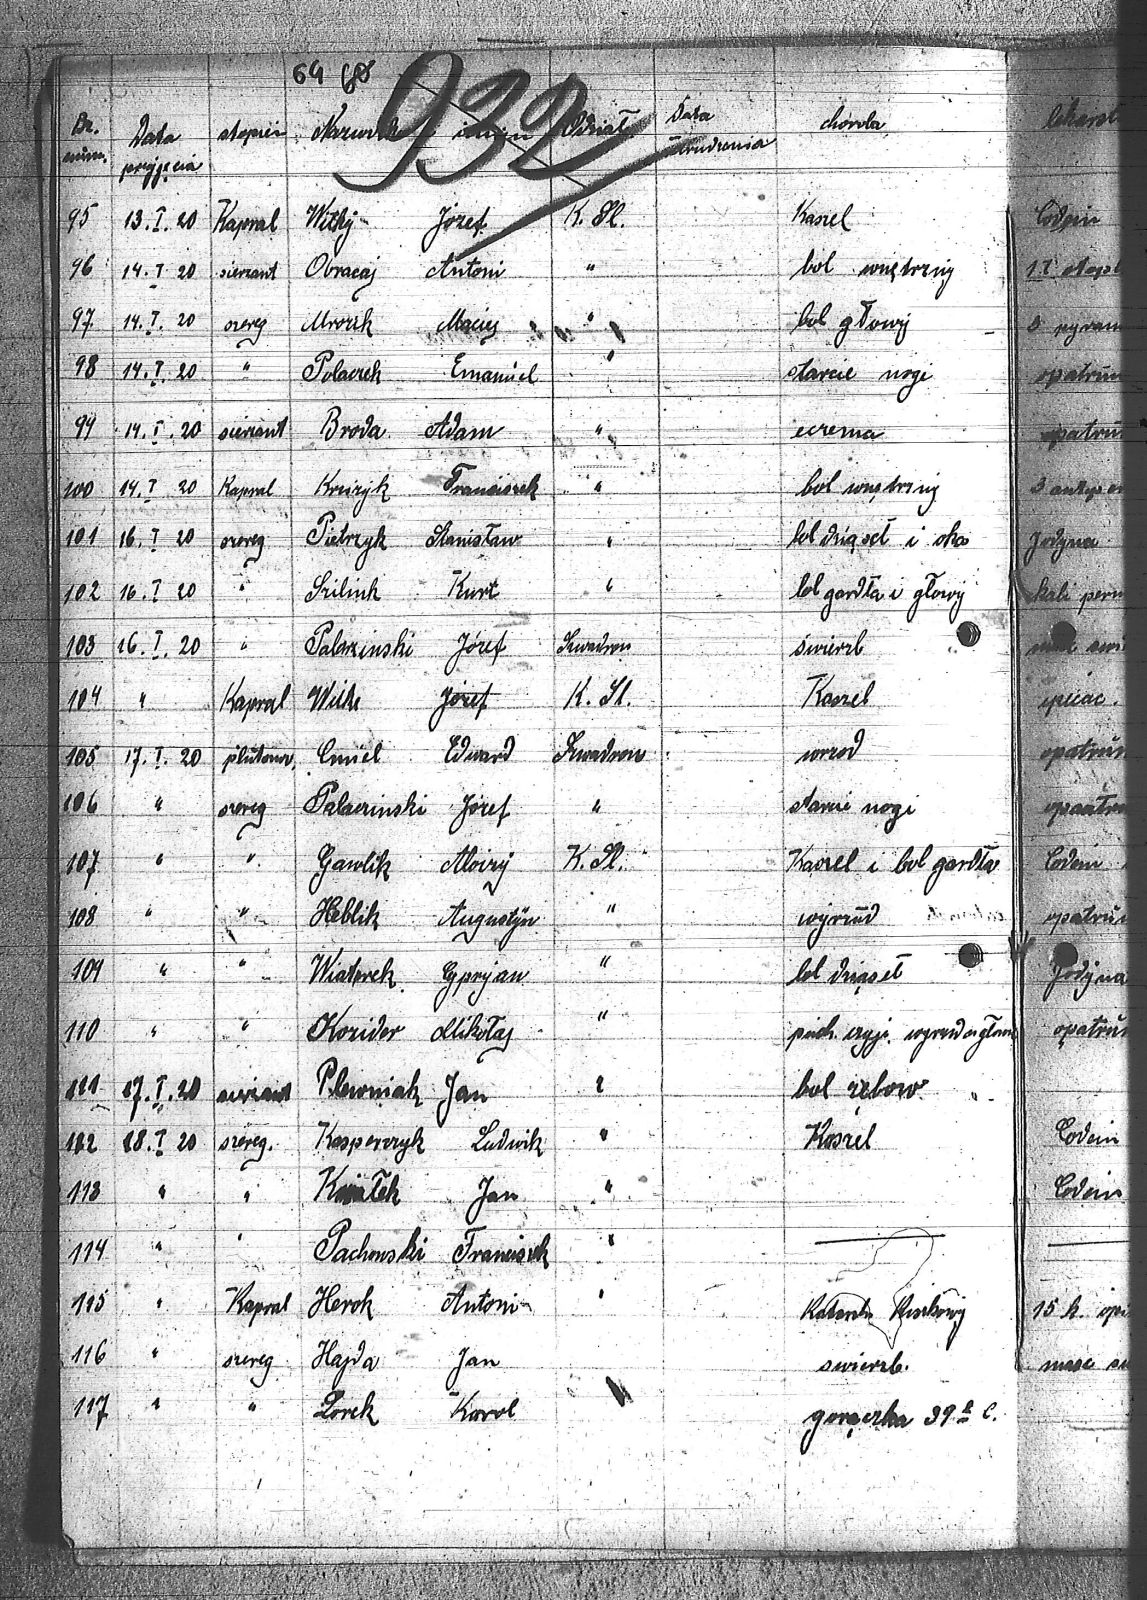 64 68
932
Bz. num. Data przyjęcia stopień Nazwisko imien Odział Data zwudzenia choroba lekarst
95 13.I.20 Kapral Witky Józef K. Sl. Kaszel Codein
96 14.I 20 sierzant Obracaj Antoni " bol wnętrzny
97 14.I.20 szereg Mrozek Maciej " bol głowy 3 pyram
98 14.I.20 " Polaczek Emanuel " starcie nogi opatrun
99 14.I.20 sierzant Broda Adam " eczema opatru
100 14.I 20 Kapral Kruzyk Franciszek " bol wnętrzny 3 antyp
101 16.I 20 szereg Pietrzyk Stanisław " bol dziąseł i oka Jodyna
102 16.I 20 " Szilink Kurt " bol gardła i głowy kali perm
103 16.I.20 " Palarzinski Józef Szwadron świerzb
104 " Kapral Witke Józef K. Sl. Kaszel ipicac.
105 17.I.20 plutonow. Cmiel Edward Szwadron wrzod opatrun
106 " szereg Palaczinski Józef " starcie nogi opaatru
107 " " Gawlik Aloizy K. Sl. Kaszel i bol gardła Codein
108 " " Heblik Augustyn " wyrzud opatrun
109 " " Wiaterek Cyprjan " bol dziąseł Jodyna
110 " " Kozider Mikołaj " opatrun
111 17.I.20 sierzant Plewniak Jan " bol zębow
112 18.I 20 szereg. Kasperczyk Ludwik " Kaszel Codein
113 " " Jan " Codein
114 " " Pachonski Franciszek "
115 " Kapral Herok Antoni " Kiszkowy 15 k. opi
116 " szereg Hajda Jan swierzb. masc
117 " " Zorek Karol gorączka 39 C.